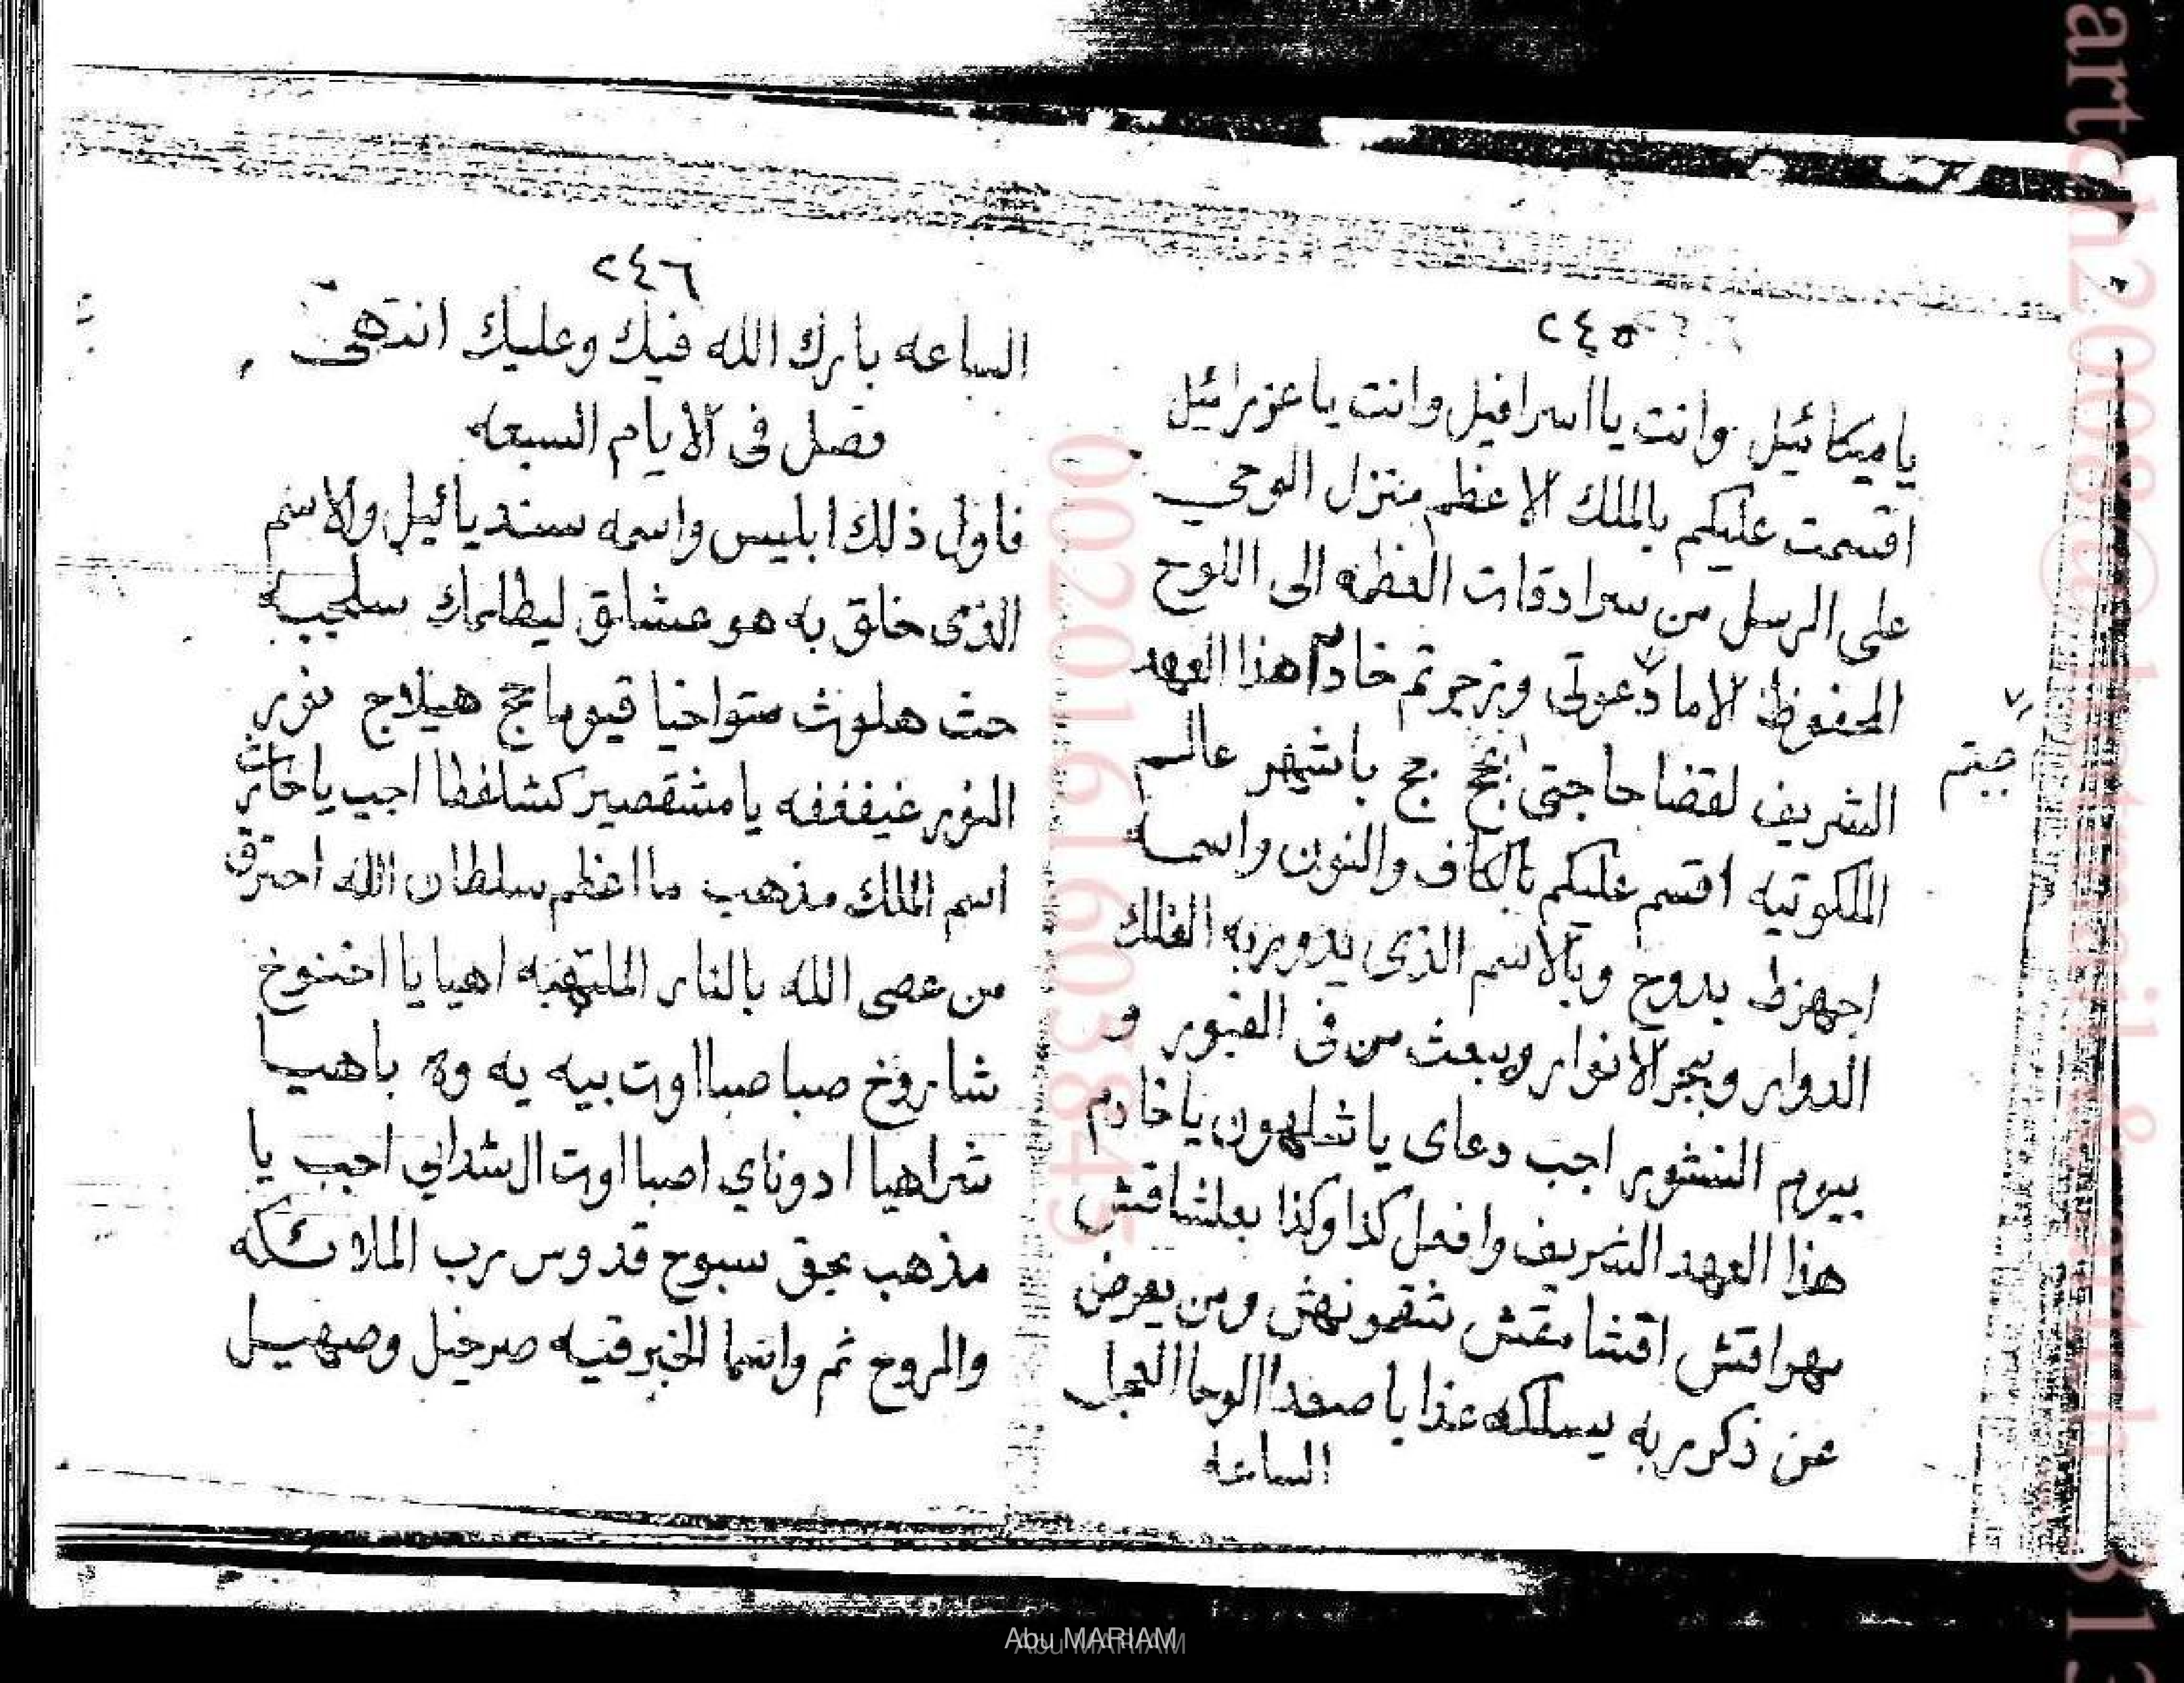 ٢٤٥
يا ميكائيل وانت يا اسرافيل وانت يا عزرائيل
اقسمت عليكم بالملك الاعظم منزل الوحي
على الرسل من سرادقات العظمه الى اللوح
المحفوظ الاما دعوتى وزجرتم خادم هذا العهد
جبتم
الشريف لقضا حاجتى بحج بج باشهر عالم
الملكوتيه اقسم عليكم بالكاف والنون واسمه
اجهزط بدوح وبالاسم الذى يدور به الفلك
الدوار وبحر الانوار ويبعث من فى القبور و
بيوم النشور اجب دعاى يا شلهون يا خادم
هذا العهد الشريف وافعل كذا وكذا بعلشاقش
مهراقش اقشامقش شقمونهش ومن يعرض
عن ذكر ربه يسلكه عذابا صعدا الوحا العجل
الساعه
٢٤٦
الساعه بارك الله فيك وعليك انتهى
فصل فى الايام السبعه
فاول ذلك ابليس واسمه سنديائيل والاسم
الذى خلق به هو عشاق ليطايمك سلجبه
حث هلوث متواخيا قيوماجج هيلاج نور
النور غيفففه يا مشقصير كشلفطا اجب يا حارث
اسم الملك مذهب ما اعظم سلطان الله احترق
من عصى الله بالنار الملتهبه اهيا يا اخنوخ
شاروخ صبا صبااوت بيه يه وه باهيا
شراهيا ادوناي اصبااوت ال شداي اجب يا
مذهب بحق سبوح قدوس رب الملائكه
والروح ثم واسما الخبرقيه صرخيل وصهيل
artch2008@hotmail
0020161603845
Abu MARIAM